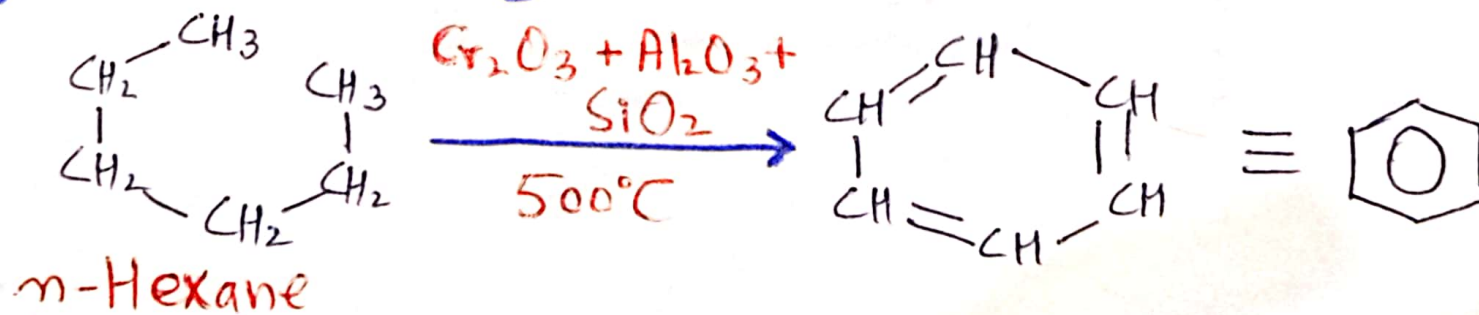 CH3
CH2
CH3
CH2
CH2
CH2
n-Hexane
Cr2O3 + Al2O3 +
SiO2
500°C
CH
CH
CH
CH
CH
CH
≡